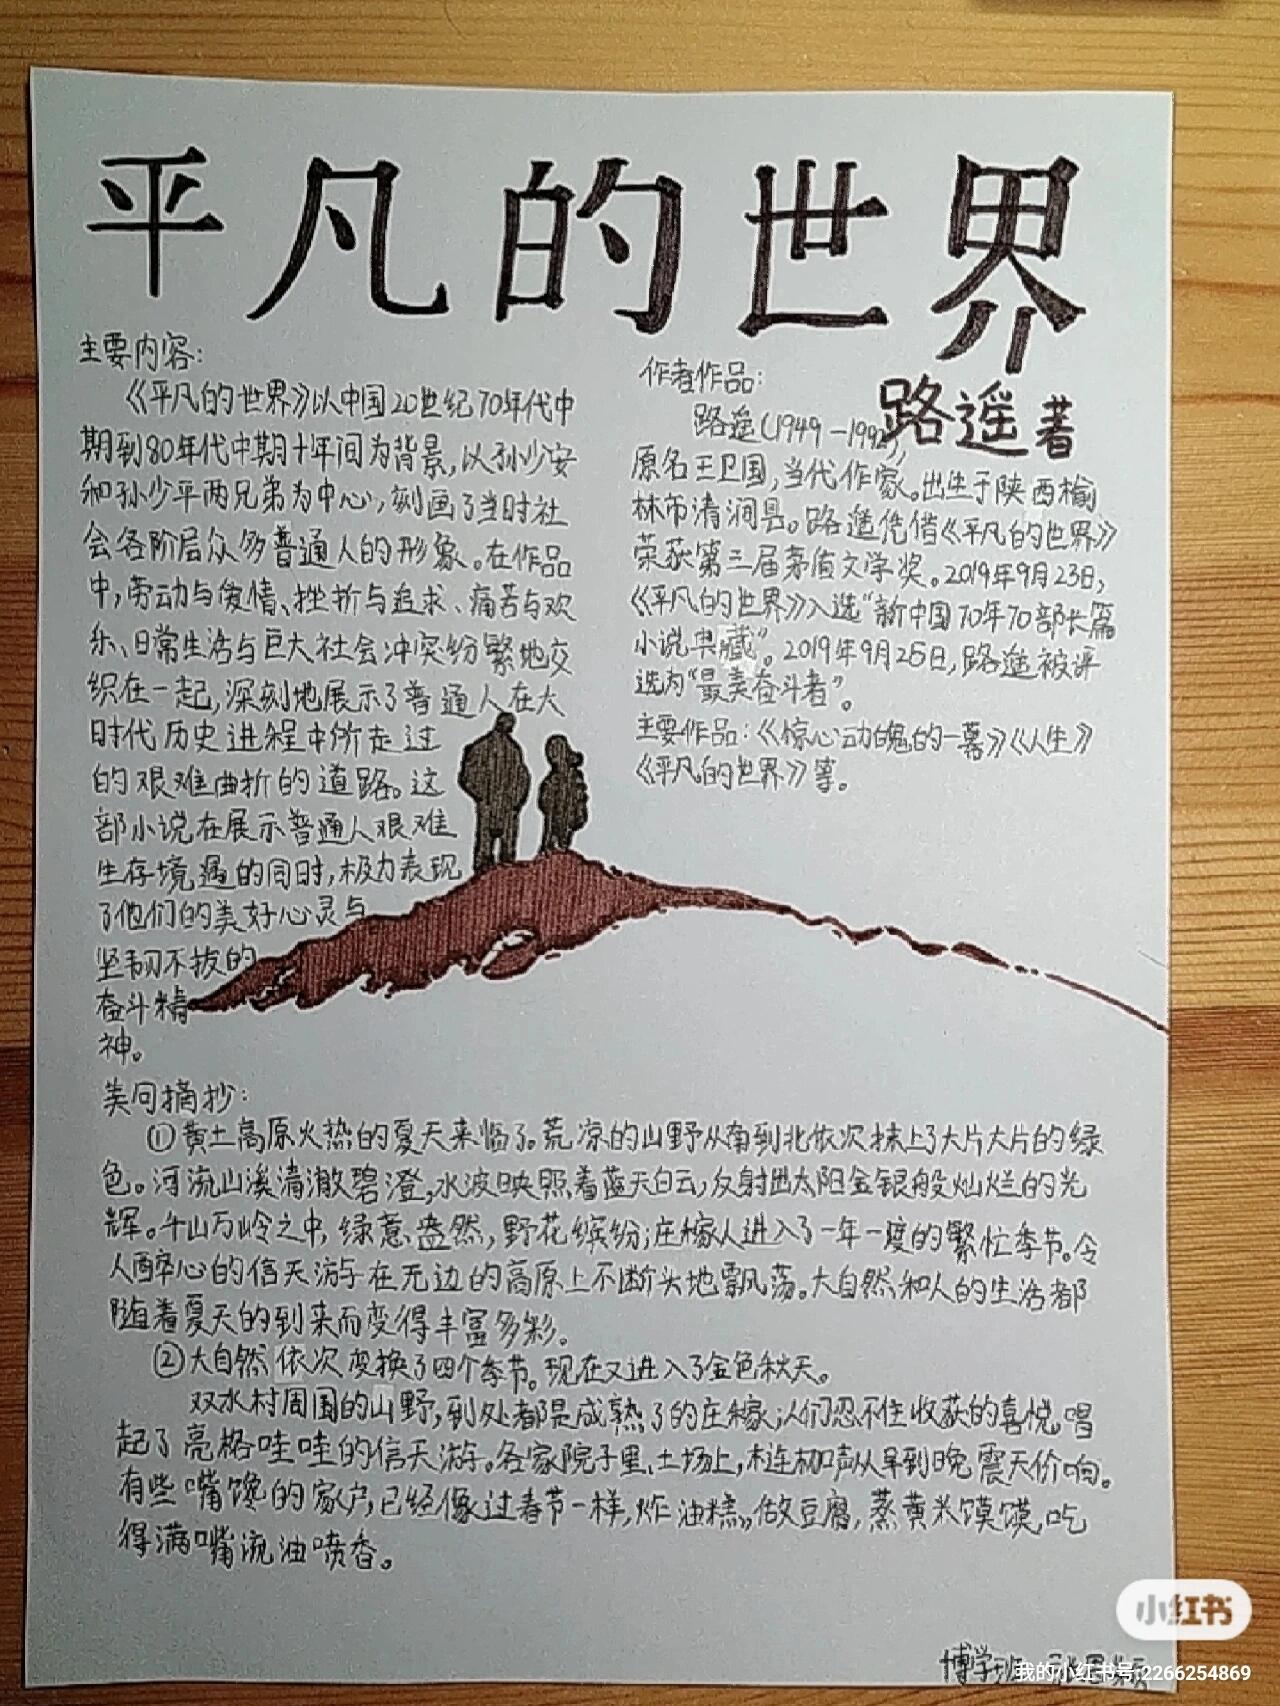 平凡的世界
路遥 著
主要内容:
《平凡的世界》以中国20世纪70年代中
期到80年代中期十年间为背景,以孙少安
和孙少平两兄弟为中心,刻画了当时社
会各阶层众多普通人的形象。在作品
中,劳动与爱情、挫折与追求、痛苦与欢
乐、日常生活与巨大社会冲突纷繁地交
织在一起,深刻地展示了普通人在大
时代历史进程中所走过
的艰难曲折的道路。这
部小说在展示普通人艰难
生存境遇的同时,极力表现
了他们的美好心灵与
坚韧不拔的
奋斗精
神。
作者作品:
路遥(1949-1992),
原名王卫国,当代作家。出生于陕西榆
林市清涧县。路遥凭借《平凡的世界》
荣获第三届茅盾文学奖。2019年9月23日,
《平凡的世界》入选“新中国70年70部长篇
小说典藏”。2019年9月25日,路遥被评
选为“最美奋斗者”。
主要作品:《惊心动魄的一幕》《人生》
《平凡的世界》等。
美句摘抄:
①黄土高原火热的夏天来临了。荒凉的山野从南到北依次抹上了大片大片的绿
色。河流山溪清澈碧澄,水波映照着蓝天白云,反射出太阳金银般灿烂的光
辉。千山万岭之中,绿意盎然,野花缤纷;庄稼人进入了一年一度的繁忙季节。令
人醉心的信天游在无边的高原上不断头地飘荡。大自然和人的生活都
随着夏天的到来而变得丰富多彩。
②大自然依次变换了四个季节。现在又进入了金色秋天。
双水村周围的山野,到处都是成熟了的庄稼,人们忍不住收获的喜悦,唱
起了亮格哇哇的信天游。各家院子里、土场上,梿枷声从早到晚震天价响。
有些嘴馋的家户,已经像过春节一样,炸油糕,做豆腐,蒸黄米馍馍,吃
得满嘴流油喷香。
小红书
博学班
我的小红书号:2266254869